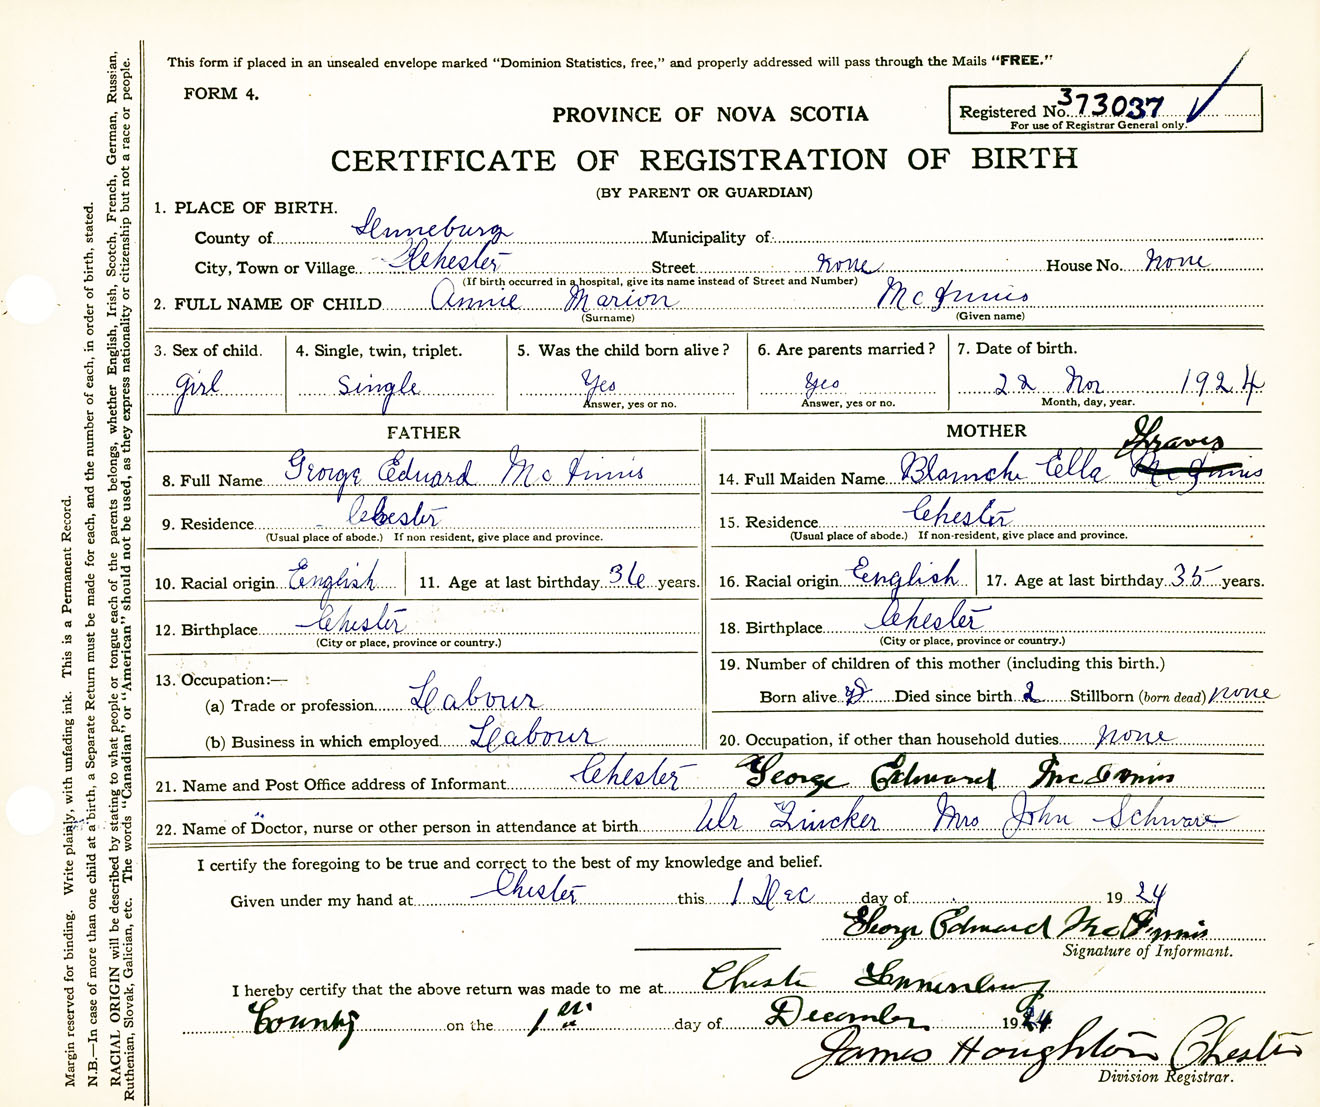 This form if placed in an unsealed envelope marked "Dominion Statistics, free," and properly addressed will pass through the Mails "FREE."
FORM 4.
PROVINCE OF NOVA SCOTIA
Registered No. 373037
For use of Registrar General only.
CERTIFICATE OF REGISTRATION OF BIRTH
(BY PARENT OR GUARDIAN)
1. PLACE OF BIRTH.
County of Lunneburg Municipality of
City, Town or Village Chester Street none House No. none
(If birth occurred in a hospital, give its name instead of Street and Number)
2. FULL NAME OF CHILD Annie Marion McInnis
(Surname) (Given name)
3. Sex of child. 4. Single, twin, triplet. 5. Was the child born alive? 6. Are parents married? 7. Date of birth.
girl single Yes Yes 22 Nov 1924
Answer, yes or no. Answer, yes or no. Month, day, year.
FATHER MOTHER
Graves
8. Full Name George Edward McInnis 14. Full Maiden Name Blanche Ella McInnis
9. Residence Chester 15. Residence Chester
(Usual place of abode.) If non resident, give place and province. (Usual place of abode.) If non-resident, give place and province.
10. Racial origin English 11. Age at last birthday 36 years. 16. Racial origin English 17. Age at last birthday 35 years.
12. Birthplace Chester 18. Birthplace Chester
(City or place, province or country.) (City or place, province or country.)
13. Occupation:— 19. Number of children of this mother (including this birth.)
(a) Trade or profession Labour Born alive Died since birth 2 Stillborn (born dead) none
(b) Business in which employed Labour 20. Occupation, if other than household duties none
21. Name and Post Office address of Informant Chester George Edward McInnis
22. Name of Doctor, nurse or other person in attendance at birth Dr Zincker Mrs John Schware
I certify the foregoing to be true and correct to the best of my knowledge and belief.
Given under my hand at Chester this 1 Dec day of 1924
George Edward McInnis
Signature of Informant.
I hereby certify that the above return was made to me at Chester Lunenburg
County on the 1st day of December 1924
James Houghton Chester
Division Registrar.
Margin reserved for binding. Write plainly, with unfading ink. This is a Permanent Record.
N.B.—In case of more than one child at a birth, a Separate Return must be made for each, and the number of each, in order of birth, stated.
RACIAL ORIGIN will be described by stating to what people or tongue each of the parents belongs, whether English, Irish, Scotch, French, German, Russian,
Ruthenian, Slovak, Galician, etc. The words "Canadian" or "American" should not be used, as they express nationality or citizenship but not a race or people.